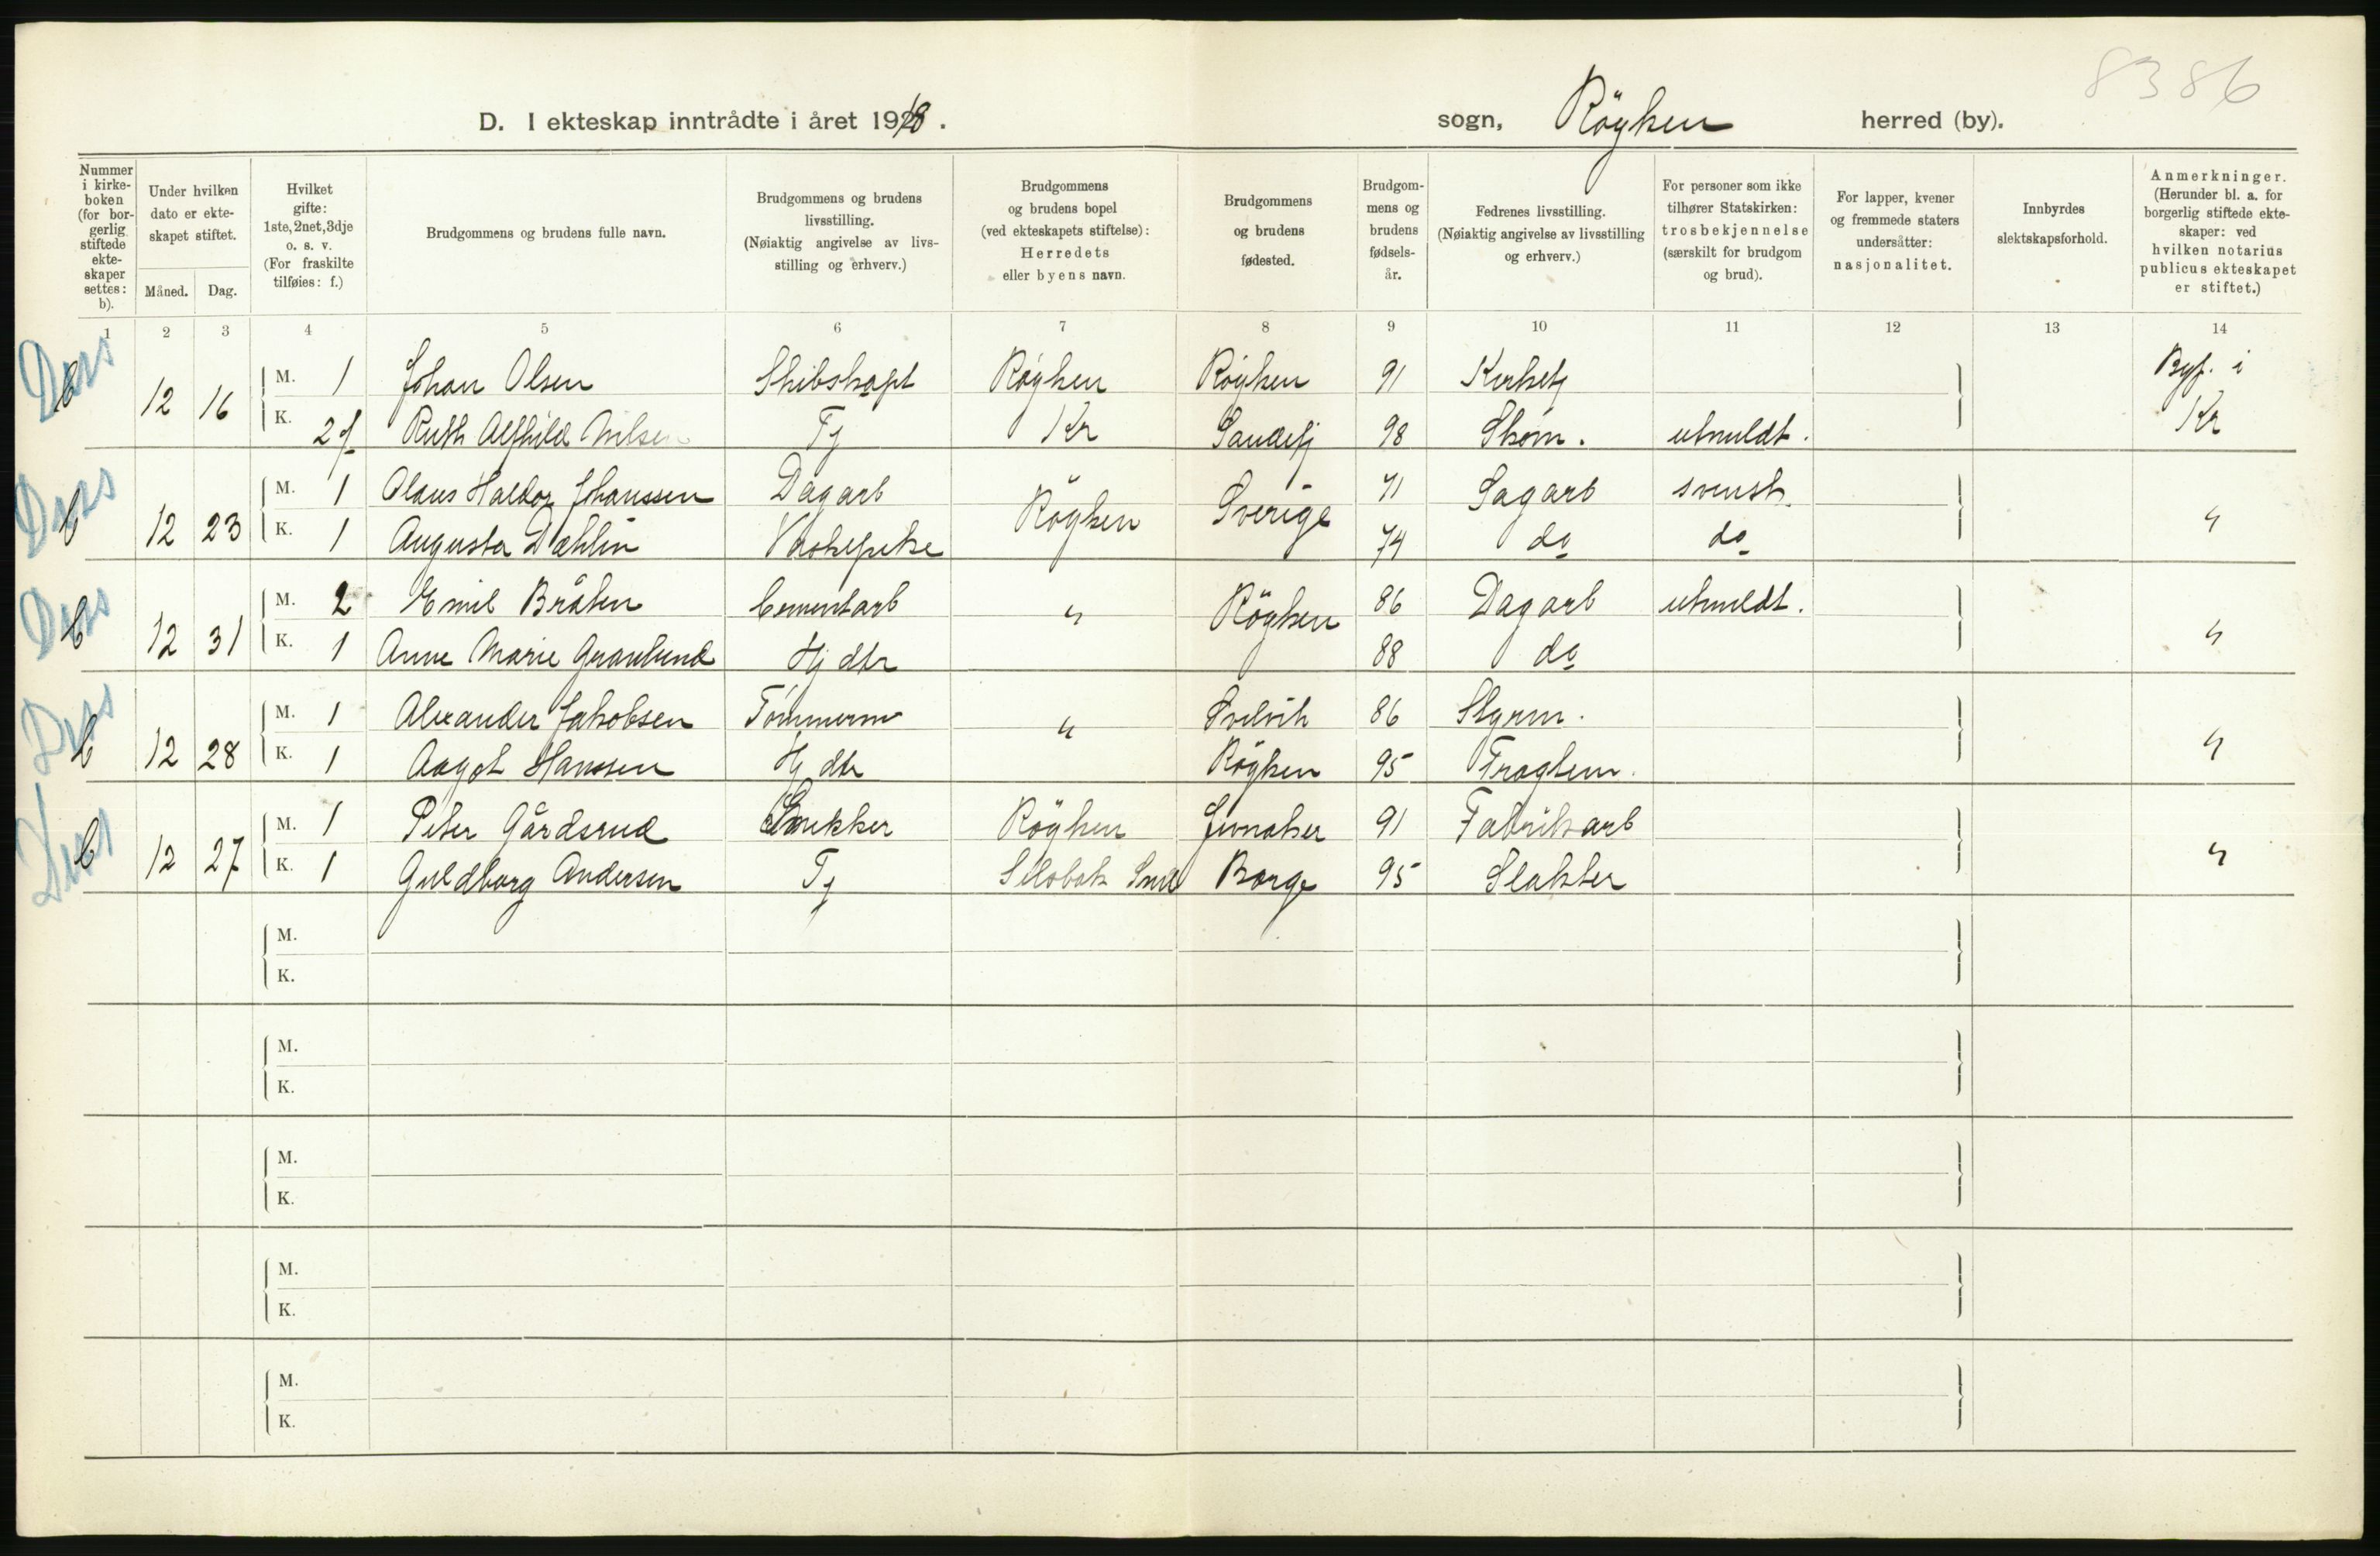 8386
D. I ekteskap inntrådte i året 1918. sogn, Röyken herred (by).
Nummer i kirke-boken (for bor-gerlig stiftede ekte-skaper settes: b).
Under hvilken dato er ekte-skapet stiftet.
Måned. Dag.
Hvilket gifte: 1ste, 2net, 3dje o. s. v. (For fraskilte tilføies: f.)
Brudgommens og brudens fulle navn.
Brudgommens og brudens livsstilling. (Nøiaktig angivelse av livs-stilling og erhverv.)
Brudgommens og brudens bopel (ved ekteskapets stiftelse): Herredets eller byens navn.
Brudgommens og brudens fødested.
Brudgom-mens og brudens fødsels-år.
Fedrenes livsstilling. (Nøiaktig angivelse av livsstilling og erhverv.)
For personer som ikke tilhører Statskirken: trosbekjennelse (særskilt for brudgom og brud).
For lapper, kvener og fremmede staters undersåtter: nasjonalitet.
Innbyrdes slektskapsforhold.
Anmerkninger. (Herunder bl. a. for borgerlig stiftede ekte-skaper: ved hvilken notarius publicus ekteskapet er stiftet.)
1 2 3 4 5 6 7 8 9 10 11 12 13 14
b 12 16 M. 1 Johan Olsen Skibskapt Röyken Röyken 91 Byf. i
K. 2 f Ruth Alfhild Nilsen Tj Kr Sandefj 98 Skom. utmeldt. Kr
b 12 23 M. 1 Olaus Haldor Johanssen Dagarb Röyken Sverige 71 Sagarb svensk "
K. 1 Augusta Dæhlin 74 do do
b 12 31 M. 2 Emil Bråten Cementarb " Röyken 86 Dagarb utmeldt. "
K. 1 Anne Marie Granlund Hj dtr 88 do
b 12 28 M. 1 Alexander Jakobsen Tömmerm " Svelvik 86 Styrm. "
K. 1 Aagot Hanssen Hj dtr Röyken 95
b 12 27 M. 1 Peter Gårdsrud Snekker Röyken Jevnaker 91 Fabrikarb "
K. 1 Guldborg Andersen Tj Borge 95 Slakter
M.
K.
M.
K.
M.
K.
M.
K.
M.
K.